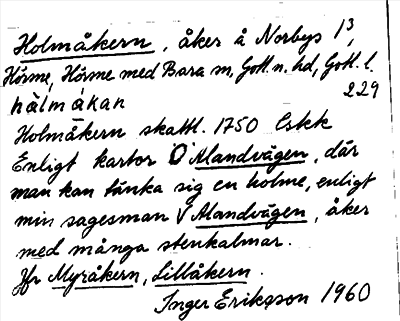 Holmåkern, åker å Norbys 1³,
Hörsne, Hörsne med Bara sn, Gotl. n. hd, Gotl. l.
hàlmåkan 229
Holmåkern skattl. 1750 Cskk
Enligt kartor Ö Alandvägen, där
man kan tänka sig en holme, enligt
min sagesman V Alandvägen, åker
med många stenkalmar.
Jfr Myråkern, Lillåkern.
Inger Eriksson 1960